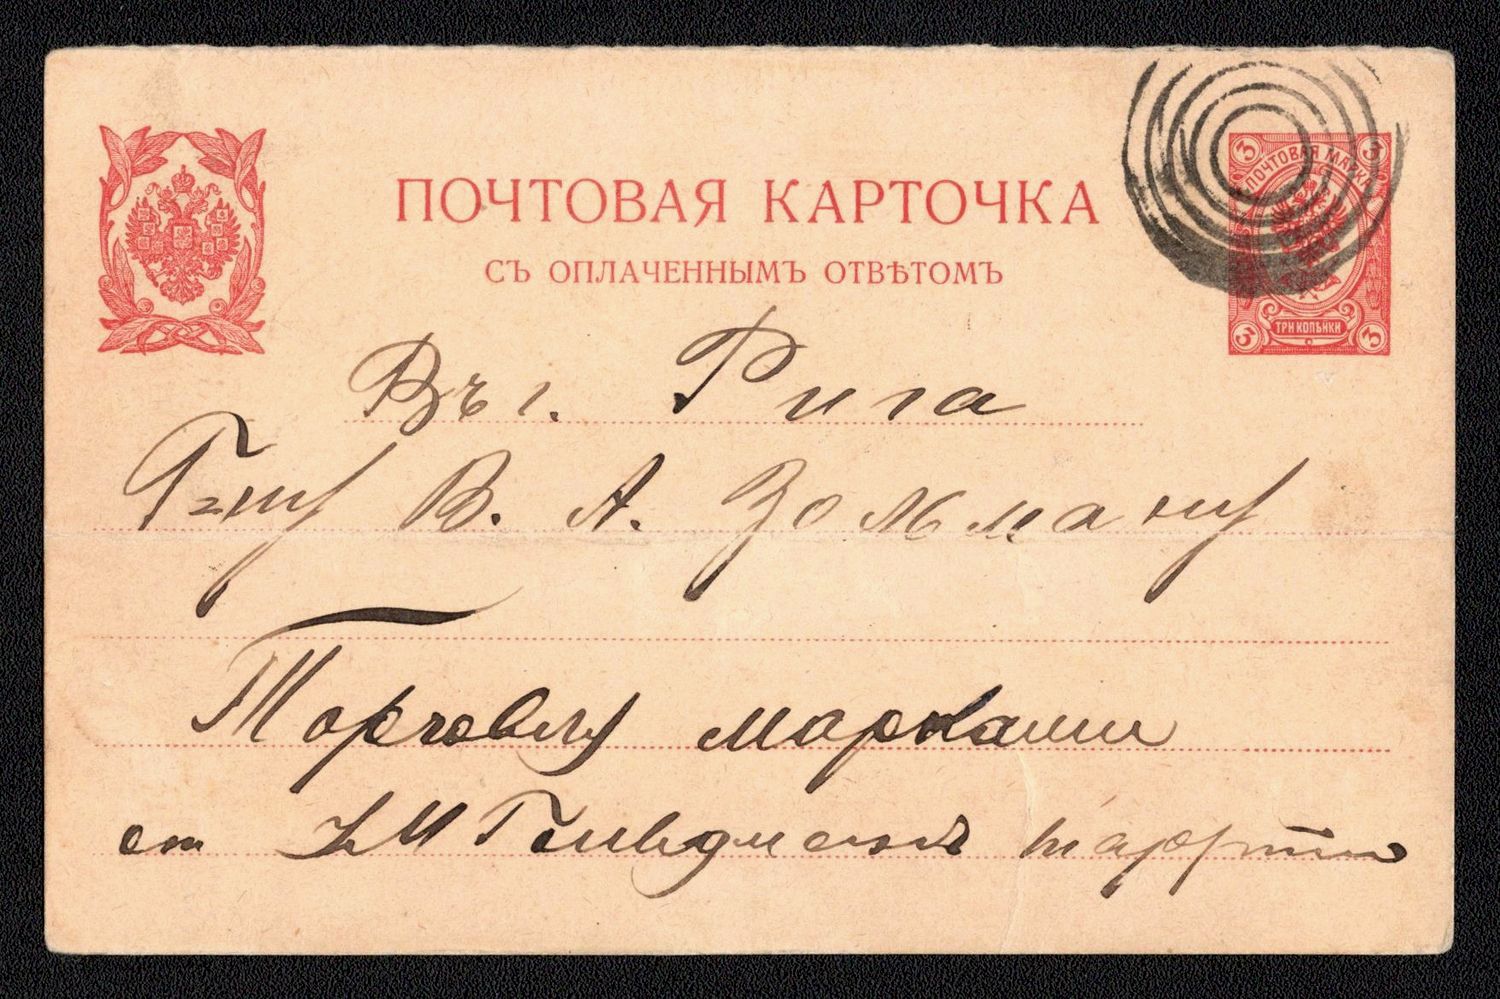 ПОЧТОВАЯ КАРТОЧКА
СЪ ОПЛАЧЕННЫМЪ ОТВѢТОМЪ
3 ПОЧТОВАЯ МАРКА 3
3 ТРИ КОПѢЙКИ 3
Въ г. Рига
Г-ну В. А. Зольману
Торговлу марками
от М Гольдман